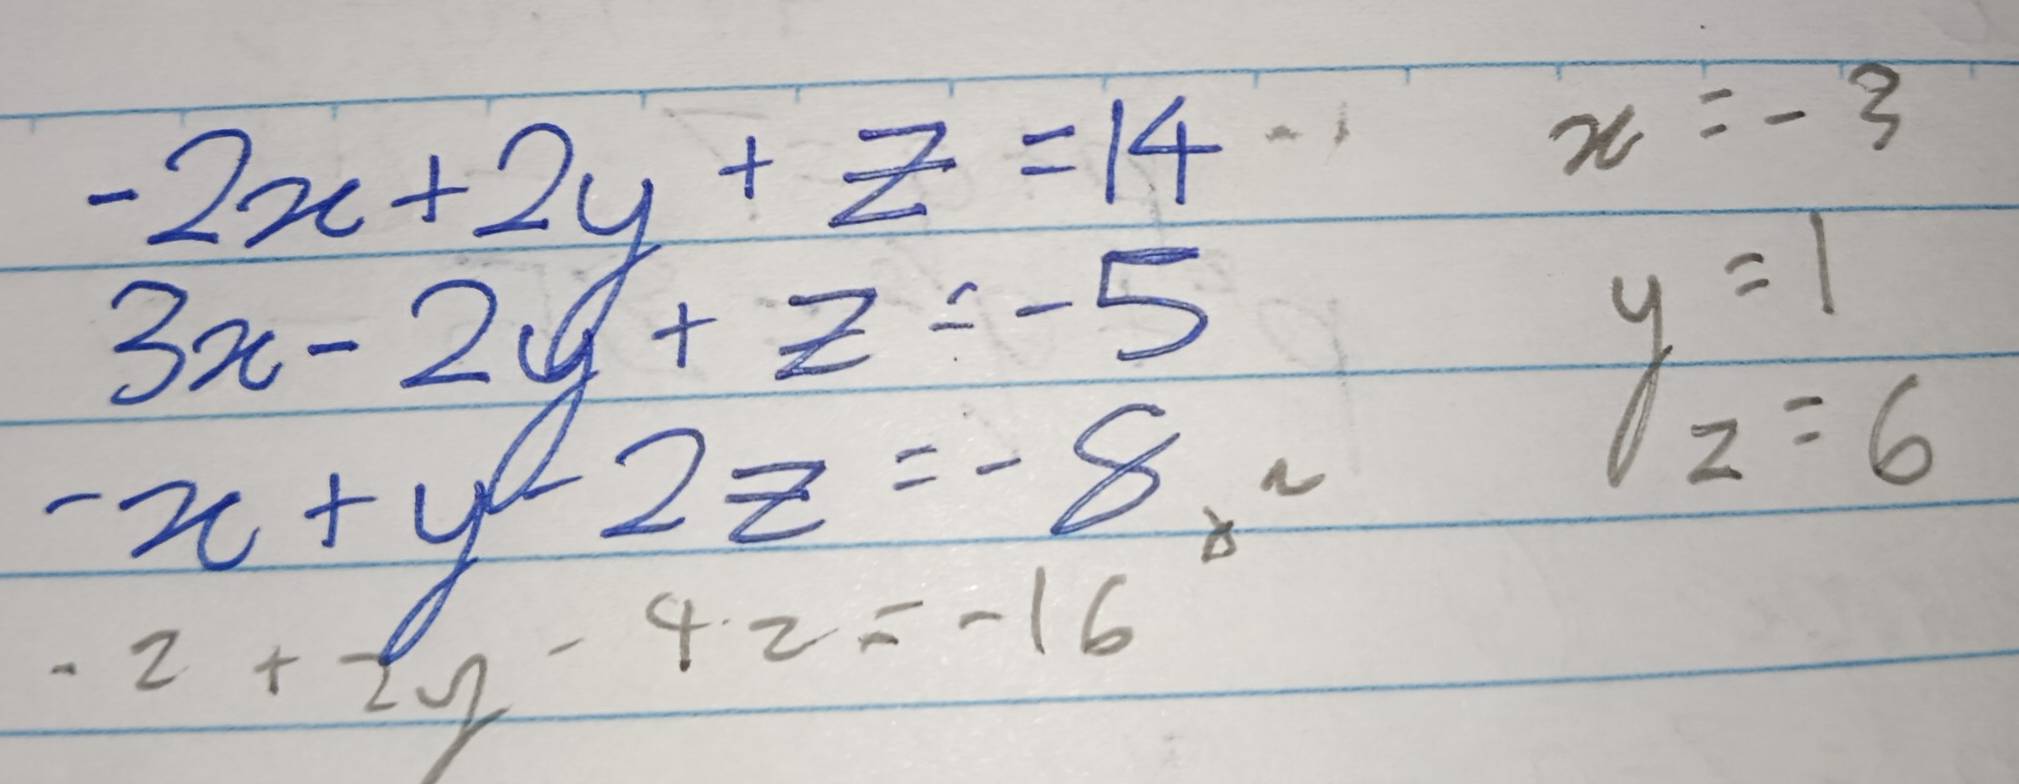 -2x+2y + z =14 -1
3x-2y+ z =-5
-x+y-2z =-8 x 2
-2 + 2y - 4z = -16
x = -3
y = 1
z = 6